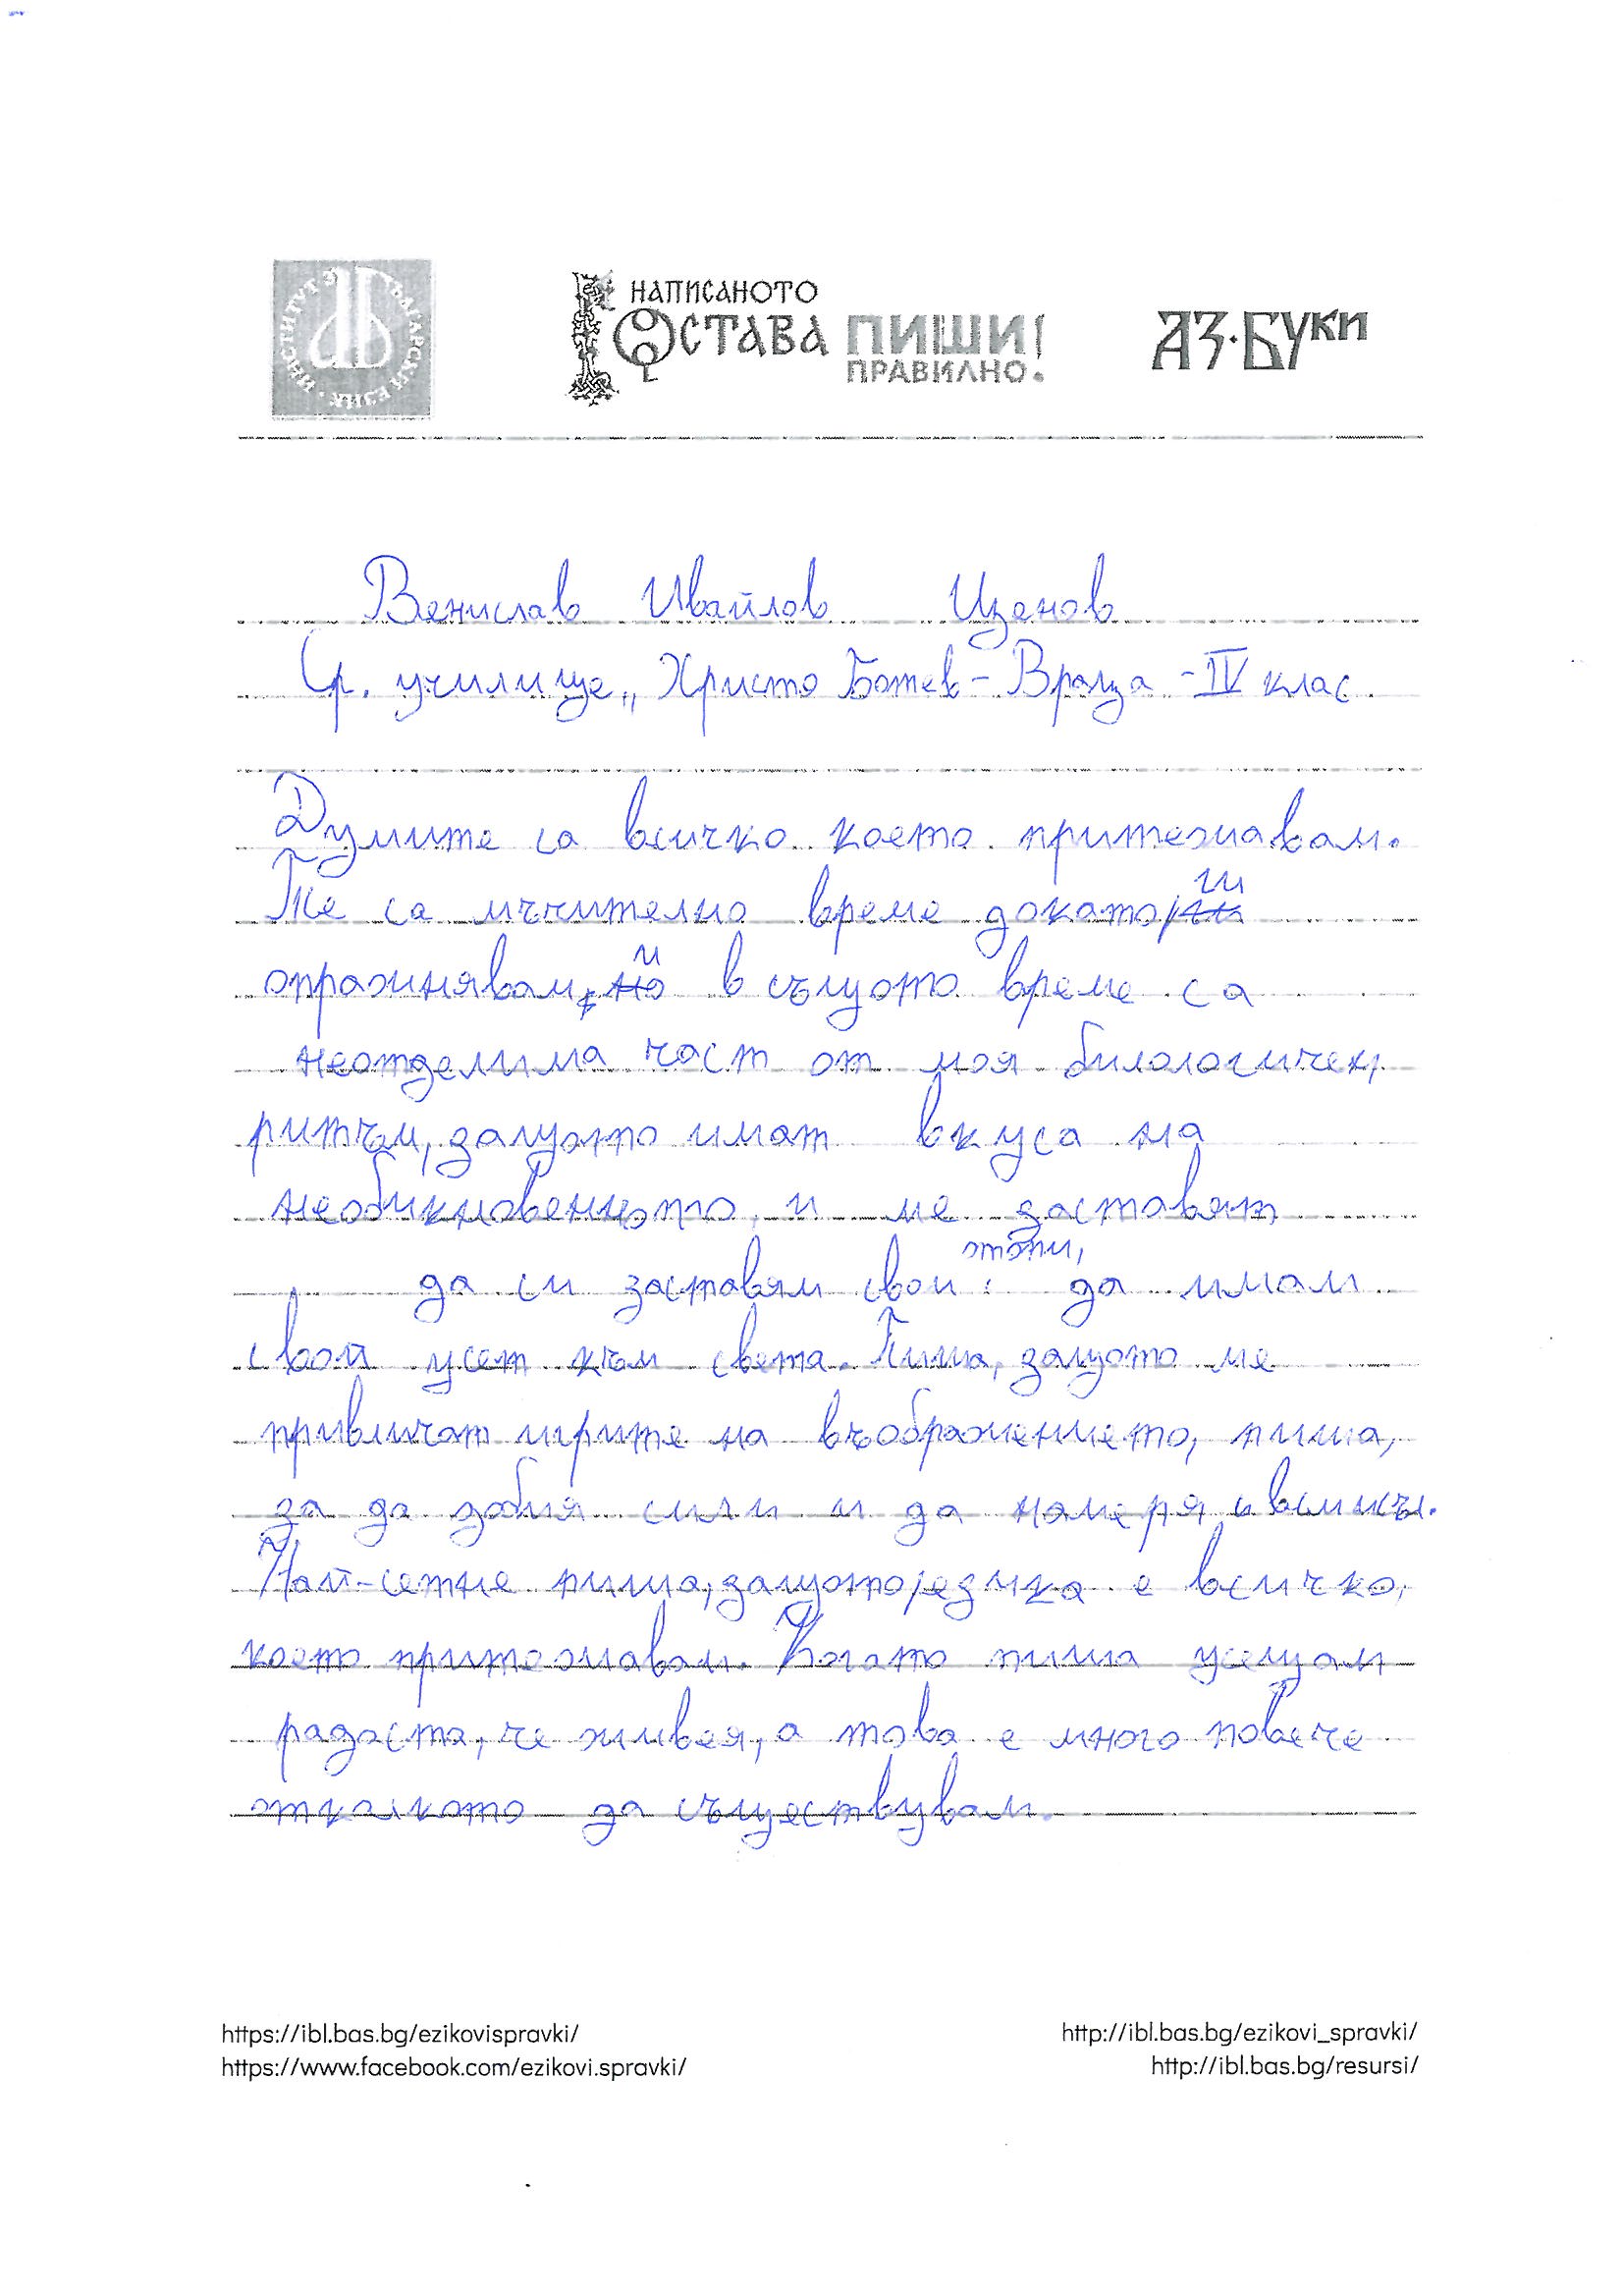 ИНСТИТУТ ЗА БЪЛГАРСКИ ЕЗИК
НАПИСАНОТО
ОСТАВА ПИШИ!
ПРАВИЛНО.
АЗ·БУКИ
Венислав Ивайлов Ценов
Ср. училище „Христо Ботев - Враца - IV клас.
Думите са всичко което притежавам.
Те са мъчително време докато ги
упражнявам, и в същото време са
неотделима част от моя билологичен
ритъм, защото имат вкуса на
необикновеното и ме заставят
да си заставям свои етапи, да имам
свой усет към света. Пиша, защото ме
привличат игрите на въображението, пиша,
за да добия сили и да намеря смисъл.
Най-сетне пиша, защото езика е всичко,
което притежавам. Когато пиша усещам
радоста, че живея, а това е много повече
отколкото да съществувам.
https://ibl.bas.bg/ezikovispravki/ http://ibl.bas.bg/ezikovi_spravki/
https://www.facebook.com/ezikovi.spravki/ http://ibl.bas.bg/resursi/